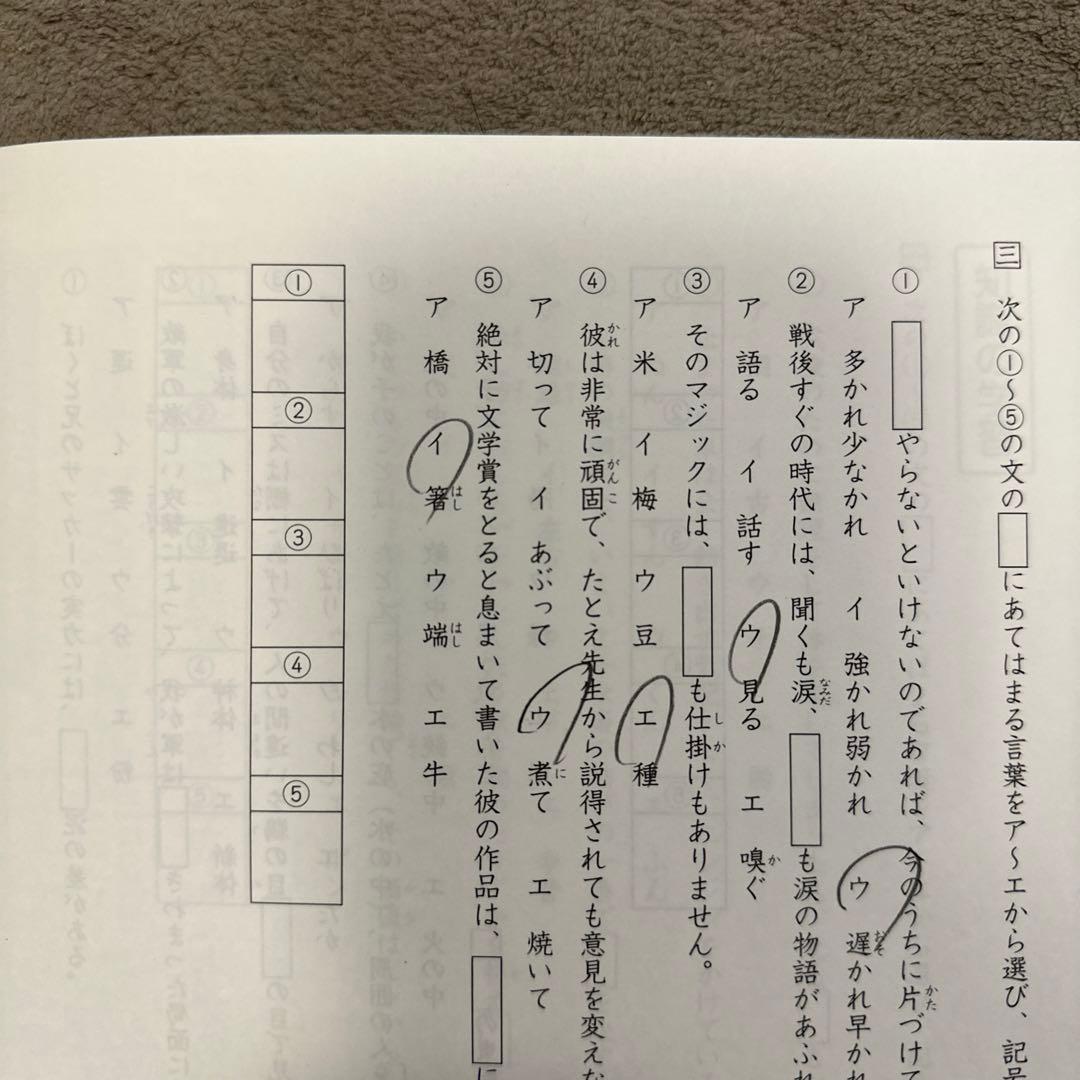 三 次の①～⑤の文の□にあてはまる言葉をア～エから選び、記号
① □やらないといけないのであれば、今のうちに片づけて
ア 多かれ少なかれ イ 強かれ弱かれ ウ 遅かれ早かれ
② 戦後すぐの時代には、聞くも涙、□も涙の物語があふれ
ア 語る イ 話す ウ 見る エ 嗅ぐ
③ そのマジックには、□も仕掛けもありません。
ア 米 イ 梅 ウ 豆 エ 種
④ 彼は非常に頑固で、たとえ先生から説得されても意見を変えな
ア 切って イ あぶって ウ 煮て エ 焼いて
⑤ 絶対に文学賞をとると息まいて書いた彼の作品は、□に
ア 橋 イ 箸 ウ 端 エ 牛
① ② ③ ④ ⑤